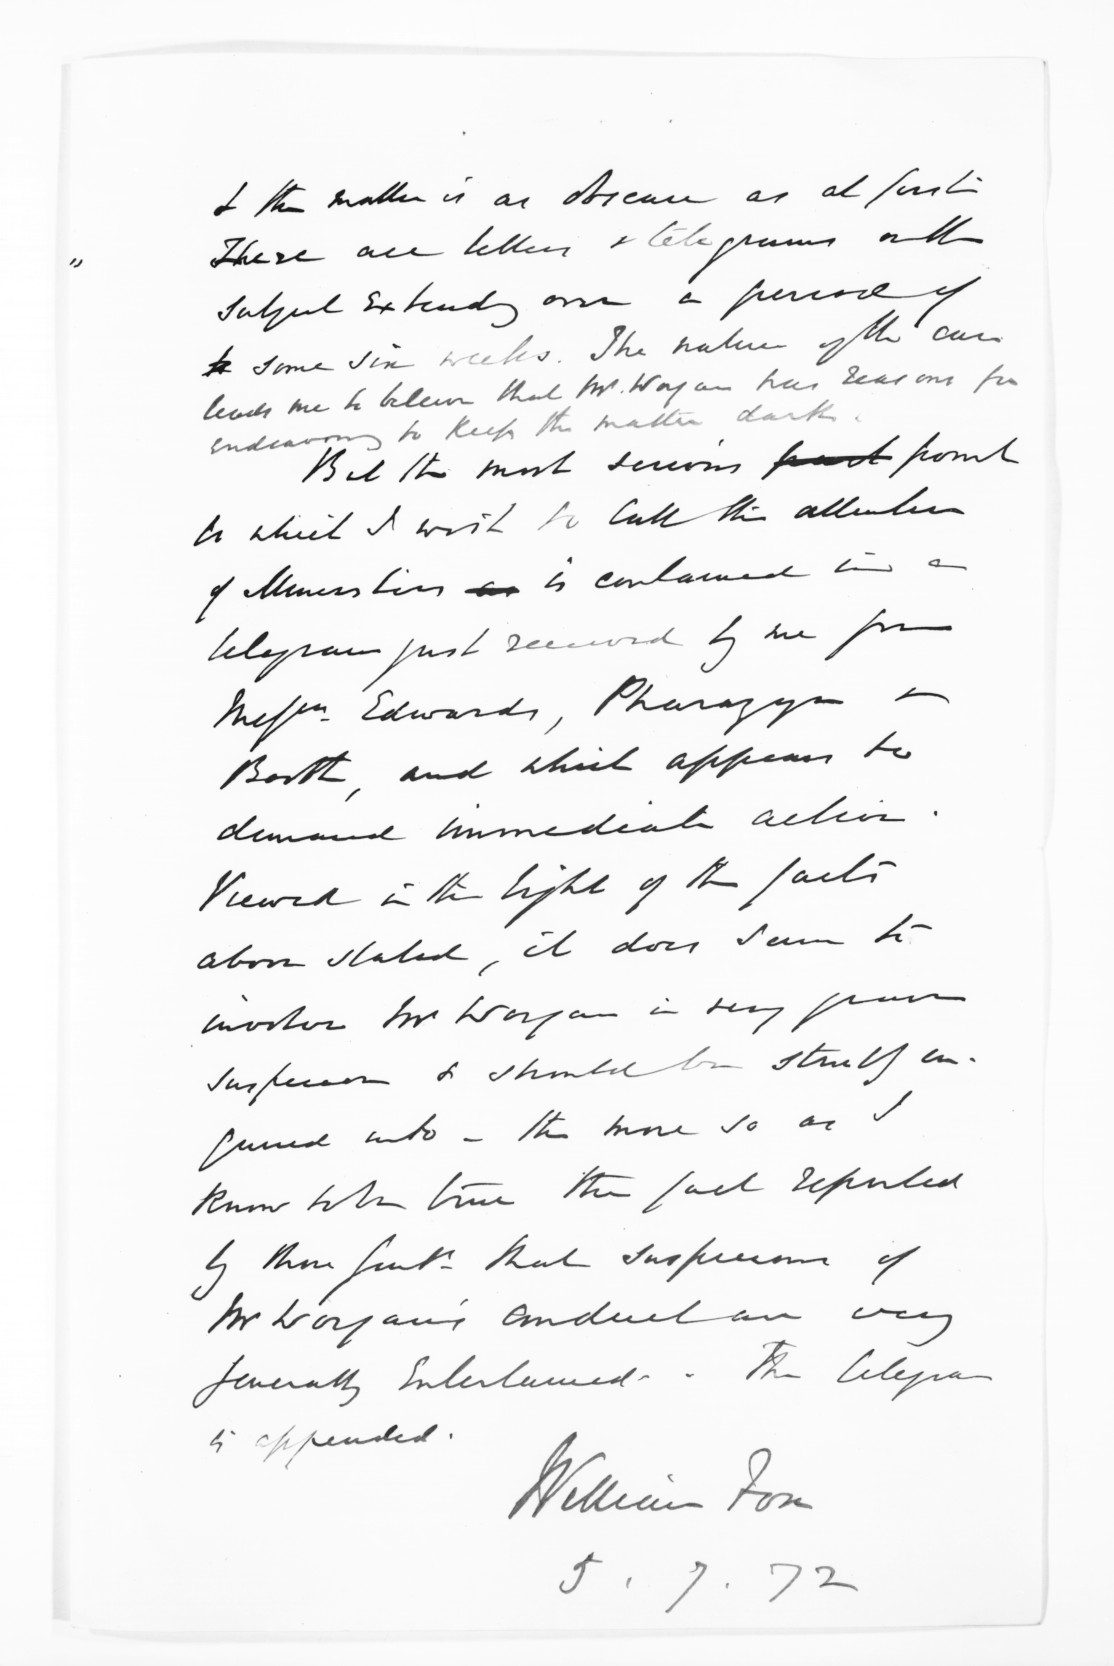 & the matter is as obscure as at first
There are letters & telegrams on the
subject extending over a period of
to some six weeks. The nature of the case
leads me to believe that Mr. Worgan has reasons for
endeavoring to keep the matter dark.
But the most serious part point
to which I wish to call the attention
of Ministers as is contained in a
telegram just received by me from
Messrs. Edwards, Pharazyn &
Booth, and which appears to
demand immediate action.
Viewed in the light of the facts
above stated, it does seem to
involve Mr Worgan in very grave
suspicion & should be strictly en-
quired into - the more so as I
know to be true the fact reported
by those Gentn. that suspicions of
Mr Worgan's conduct are very
generally entertained. - The telegram
is appended.
William Fox
5.7.72